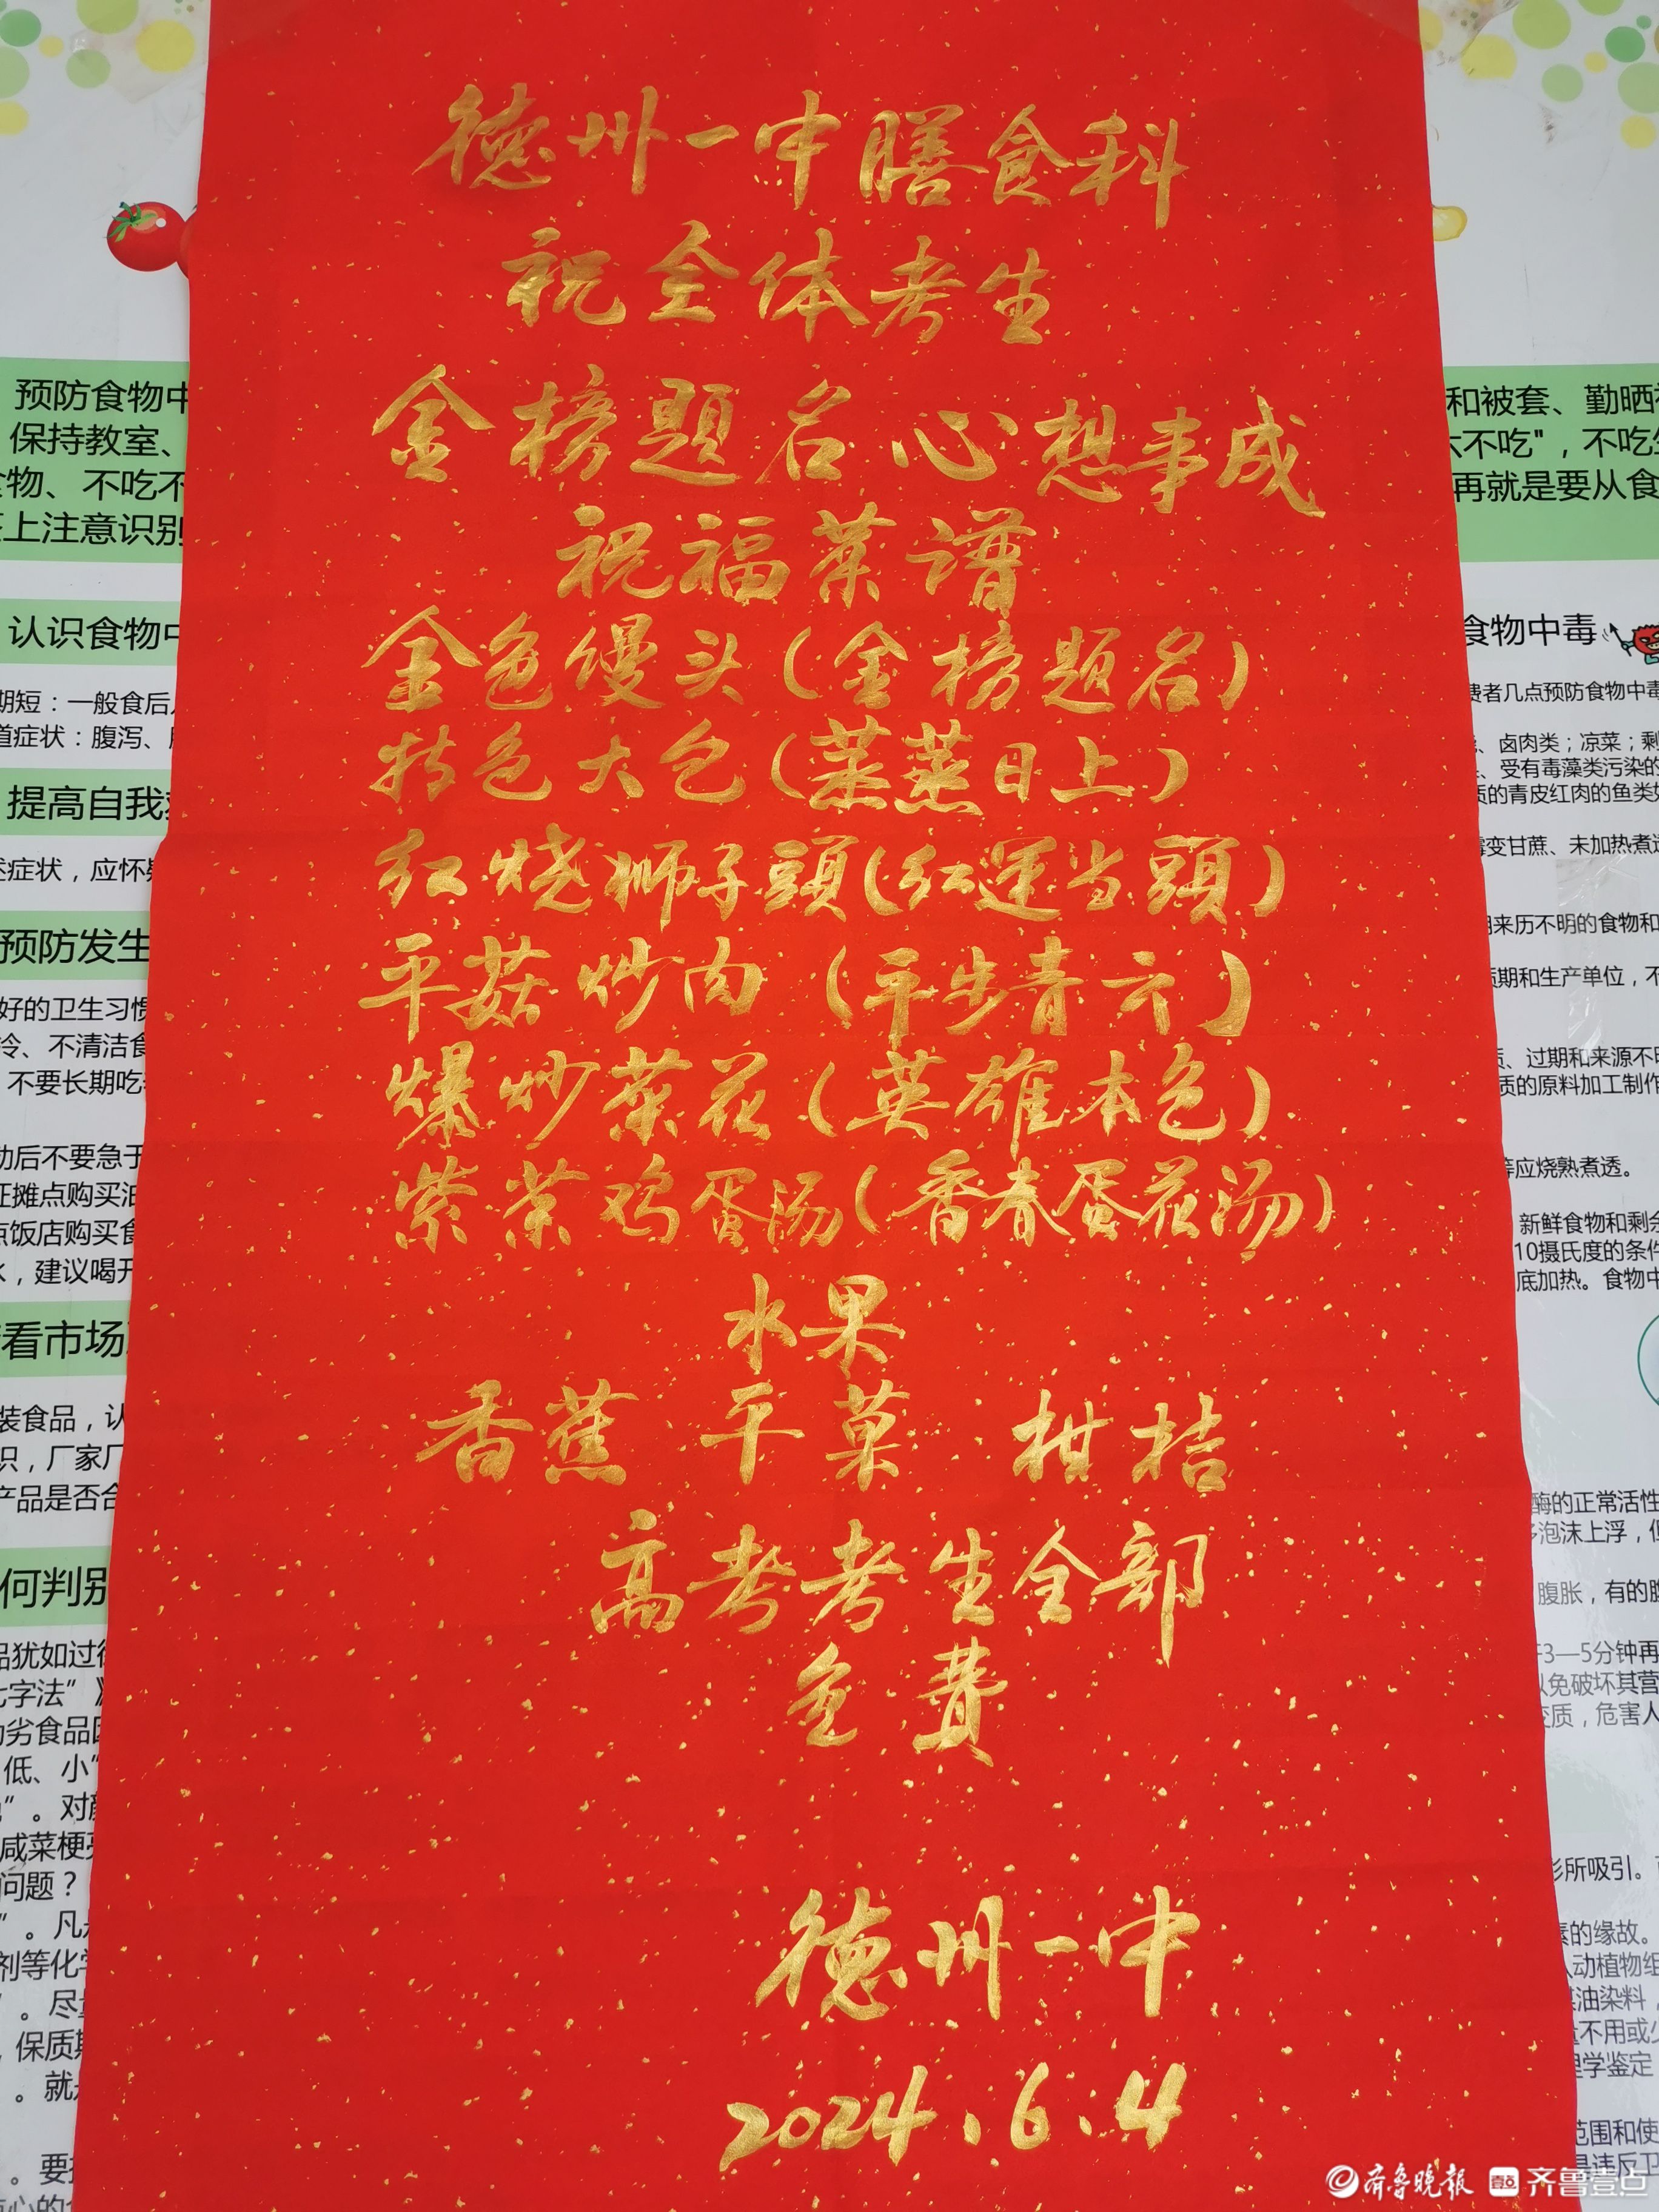 德州一中膳食科
祝全体考生
金榜题名心想事成
祝福菜谱
金色馒头(金榜题名)
特色大包(蒸蒸日上)
红烧狮子頭(红运当頭)
平菇炒肉(平步青云)
爆炒菜花(英雄本色)
紫菜鸡蛋汤(香春蛋花汤)
水果
香蕉 平菓 柑桔
高考考生全部
免费
德州一中
2024.6.4
预防食物中
保持教室、
食物、不吃不
上注意识别
认识食物中
期短：一般食后
道症状：腹泻、
提高自我
症状，应怀疑
预防发生
好的卫生习惯
冷、不清洁食
不要长期吃
动后不要急于
证摊点购买油
点饭店购买食
水，建议喝开
看市场
装食品，认
识，厂家厂
产品是否合
何判别
品犹如过
七字法”
劣食品
低、小“
”。对颜
咸菜梗亮
问题？
”。凡是
剂等化学
”。尽量
，保质期
。就是
。要
和被套、勤晒
六不吃"，不吃生
再就是要从食
食物中毒
费者几点预防食物中毒
、卤肉类；凉菜；剩
、受有毒藻类污染的
质的青皮红肉的鱼类
霉变甘蔗、未加热煮透
来历不明的食物和
质期和生产单位，不
、过期和来源不明
质的原料加工制作
等应烧熟煮透。
新鲜食物和剩余
10摄氏度的条件
底加热。食物中
酶的正常活性
泡沫上浮，但
腹胀，有的腹
3—5分钟再
以免破坏其营
变质，危害人
形所吸引。
素的缘故。
人动植物组
煤油染料，
量不用或少
理学鉴定
范围和使
是违反卫
齐鲁晚报 壹点 齐鲁壹点